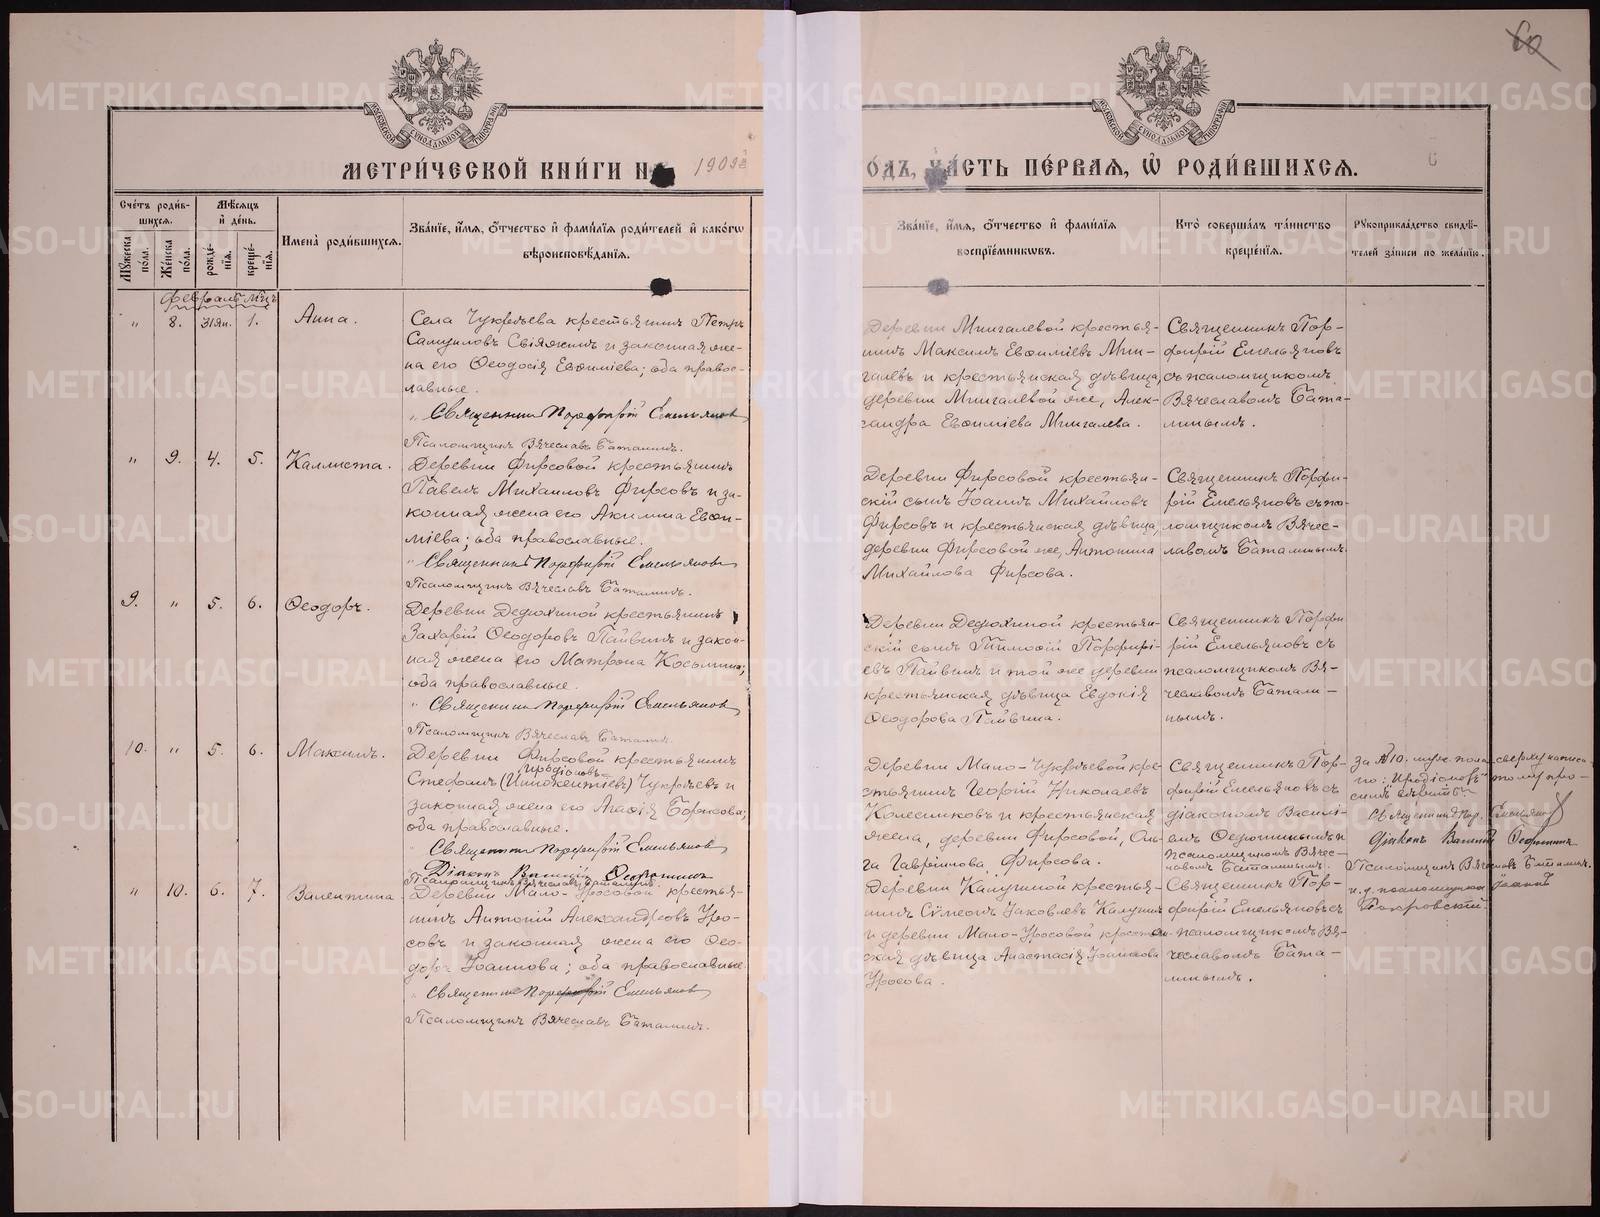 МЕТРИ́ЧЕСКОЙ КНИ́ГИ Н
1909
ОДЪ, ЧА́СТЬ ПЕ́РВАЯ, Ѡ҆ РОДИ́ВШИХСЯ.
Сче́тъ роди́в-
шихся.
Мѣ́сяцъ
и҆ де́нь.
Му́жеска
по́ла.
Же́нска
по́ла.
рожде́-
нїя.
креще́-
нїя.
Имена̀ роди́вшихся.
Зва́нїе, и҆́мя, ѻ҆́тчество и҆ фами́лїя роди́телей и҆ како́гѡ
вѣроисповѣ́данїя.
Зва́нїе, и҆́мя, ѻ҆́тчество и҆ фами́лїя
воспрїе́мникѡвъ.
Кто̀ соверша́лъ та́инство
креще́нїя.
Рꙋкоприкла́дство свидѣ́-
телей за́писи по жела́нїю.
Февраль м-цъ
" 8. 31 Ян. 1. Анна.
Села Чукреѣва крестьянинъ Петръ
Самуиловъ Свіяжинъ и законная же-
на его Ѳеодосія Евѳиміева; оба правос-
лавные.
Священникъ Порфирій Емельяновъ
Псаломщикъ Вячеславъ Баталинъ.
Деревни Мингалевой крестья-
нинъ Максимъ Евѳиміевъ Мин-
галевъ и крестьянская дѣвица,
деревни Мингалевой же, Алек-
сандра Евѳиміева Мингалева.
Священникъ Пор-
фирій Емельяновъ
съ псаломщикомъ
Вячеславомъ Бата-
линымъ.
" 9. 4. 5. Каллиста.
Деревни Фирсовой крестьянинъ
Павелъ Михаиловъ Фирсовъ и за-
конная жена его Акилина Евѳи-
міева; оба православные.
Священникъ Порфирій Емельяновъ
Псаломщикъ Вячеславъ Баталинъ.
Деревни Фирсовой крестьян-
скій сынъ Іоаннъ Михайловъ
Фирсовъ и крестьянская дѣвица,
деревни Фирсовой же, Антонина
Михайлова Фирсова.
Священникъ Порфи-
рій Емельяновъ съ пса-
ломщикомъ Вячес-
лавомъ Баталинымъ.
9. " 5. 6. Ѳеодоръ.
Деревни Дедюхиной крестьянинъ
Захарій Ѳеодоровъ Пайвинъ и закон-
ная жена его Матрона Косьмина;
оба православные.
Священникъ Порфирій Емельяновъ
Псаломщикъ Вячеславъ Баталинъ.
Деревни Дедюхиной крестьян-
скій сынъ Тимоѳей Порфирі-
евъ Пайвинъ и той же деревни
крестьянская дѣвица Евдокія
Ѳеодорова Пайвина.
Священникъ Порфи-
рій Емельяновъ съ
псаломщикомъ Вя-
чеславомъ Батали-
нымъ.
10. " 5. 6. Максимъ.
Деревни Фирсовой крестьянинъ
Иродіоновъ
Стефанъ (Иннокентіевъ) Чукреевъ и
законная жена его Агаѳія Борисова;
оба православные.
Священникъ Порфирій Емельяновъ
Діаконъ Василій Ѳедюшинъ
Псаломщикъ Вячеславъ Баталинъ.
Деревни Мало-Чукреевой кре-
стьянинъ Георгій Николаевъ
Колесниковъ и крестьянская
жена, деревни Фирсовой, Оль-
га Гавріилова Фирсова.
Священникъ Пор-
фирій Емельяновъ съ
діакономъ Василі-
емъ Ѳедюшинымъ и
псаломщикомъ Вяче-
славомъ Баталинымъ.
За №10. муж. пола сверху написа-
но: Иродіоновъ тому про-
симъ вѣрить.
Священникъ Пор. Емельяновъ
Діаконъ Василій Ѳедюшинъ
Псаломщикъ Вячеславъ Баталинъ.
и. д. псаломщика Іоаннъ
Покровскій.
" 10. 6. 7. Валентина
Деревни Мало-Уросовой крестья-
нинъ Антоній Александровъ Уро-
совъ и законная жена его Ѳео-
дора Іоаннова; оба православные.
Священникъ Порфирій Емельяновъ
Псаломщикъ Вячеславъ Баталинъ.
Деревни Калушной крестья-
нинъ Сѵмеонъ Іаковлевъ Калушинъ
и деревни Мало-Уросовой крестьян-
ская дѣвица Анастасія Іоаннова
Уросова.
Священникъ Пор-
фирій Емельяновъ съ
псаломщикомъ Вя-
чеславомъ Бата-
линымъ.